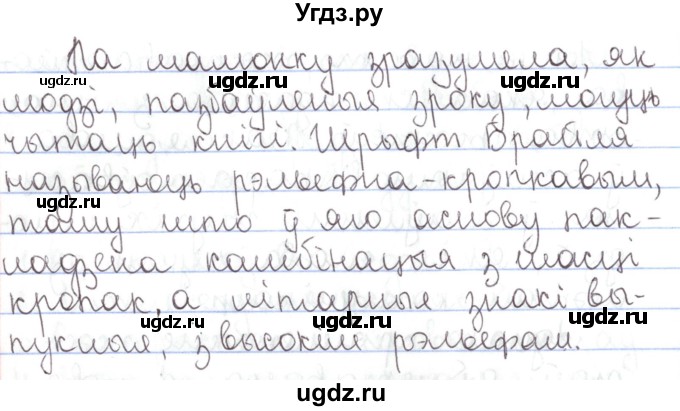 Угдз.ру
Па малюнку зразумела, як
людзі, пазбаўленыя зроку, могуць
чытаць кнігі. Шрыфт Брайля
называюць рэльефна-кропкавым,
таму што ў яго аснову пак-
ладзена камбінацыя з шасці
кропак, а літарныя знакі вы-
пуклыя, з высокім рэльефам.
ugdz.ru
ugdz.ru
ugdz.ru
ugdz.ru
ugdz.ru
ugdz.ru
ugdz.ru
ugdz.ru
ugdz.ru
ugdz.ru
ugdz.ru
ugdz.ru
ugdz.ru